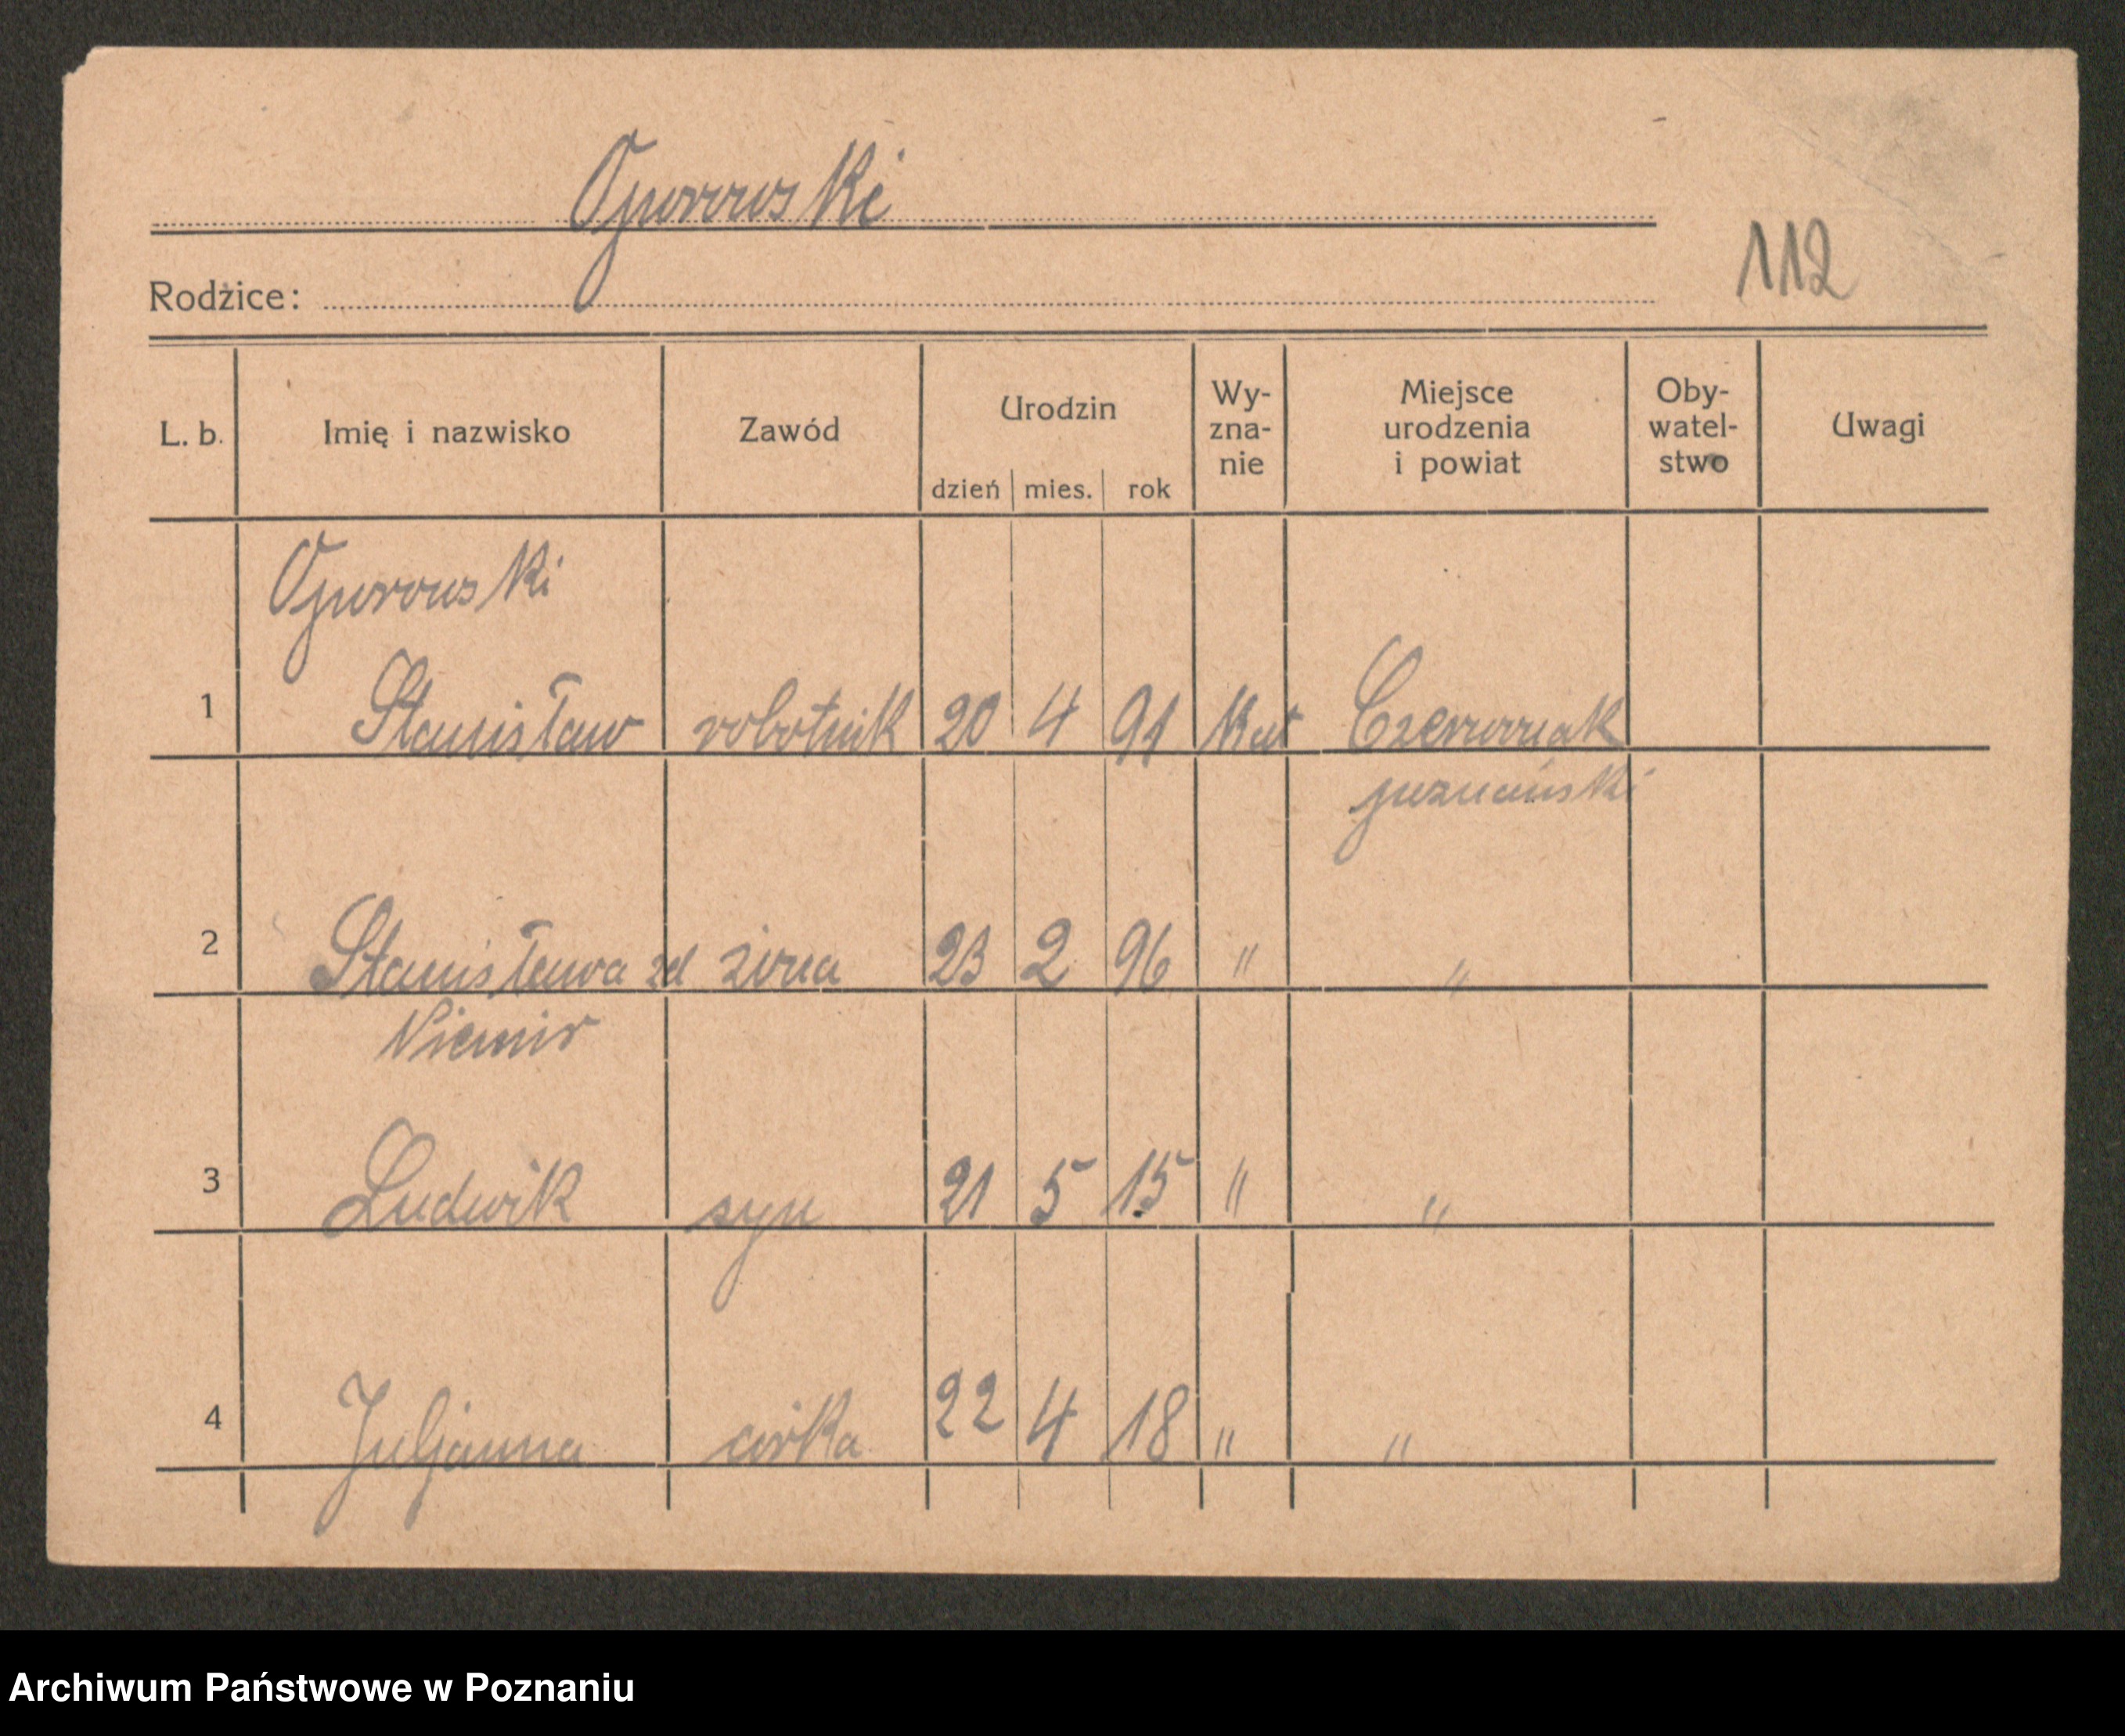 Oporowski
112
Rodzice:
L. b. Imię i nazwisko Zawód Urodzin dzień mies. rok Wy-zna-nie Miejsce urodzenia i powiat Oby-watel-stwo Uwagi
Oporowski
1 Stanisław robotnik 20 4 91 Kat Czerwonak
poznański
2 Stanisława zd żona 23 2 96 " "
Niemir
3 Ludwik syn 21 5 15 " "
4 Juljanna córka 22 4 18 " "
Archiwum Państwowe w Poznaniu